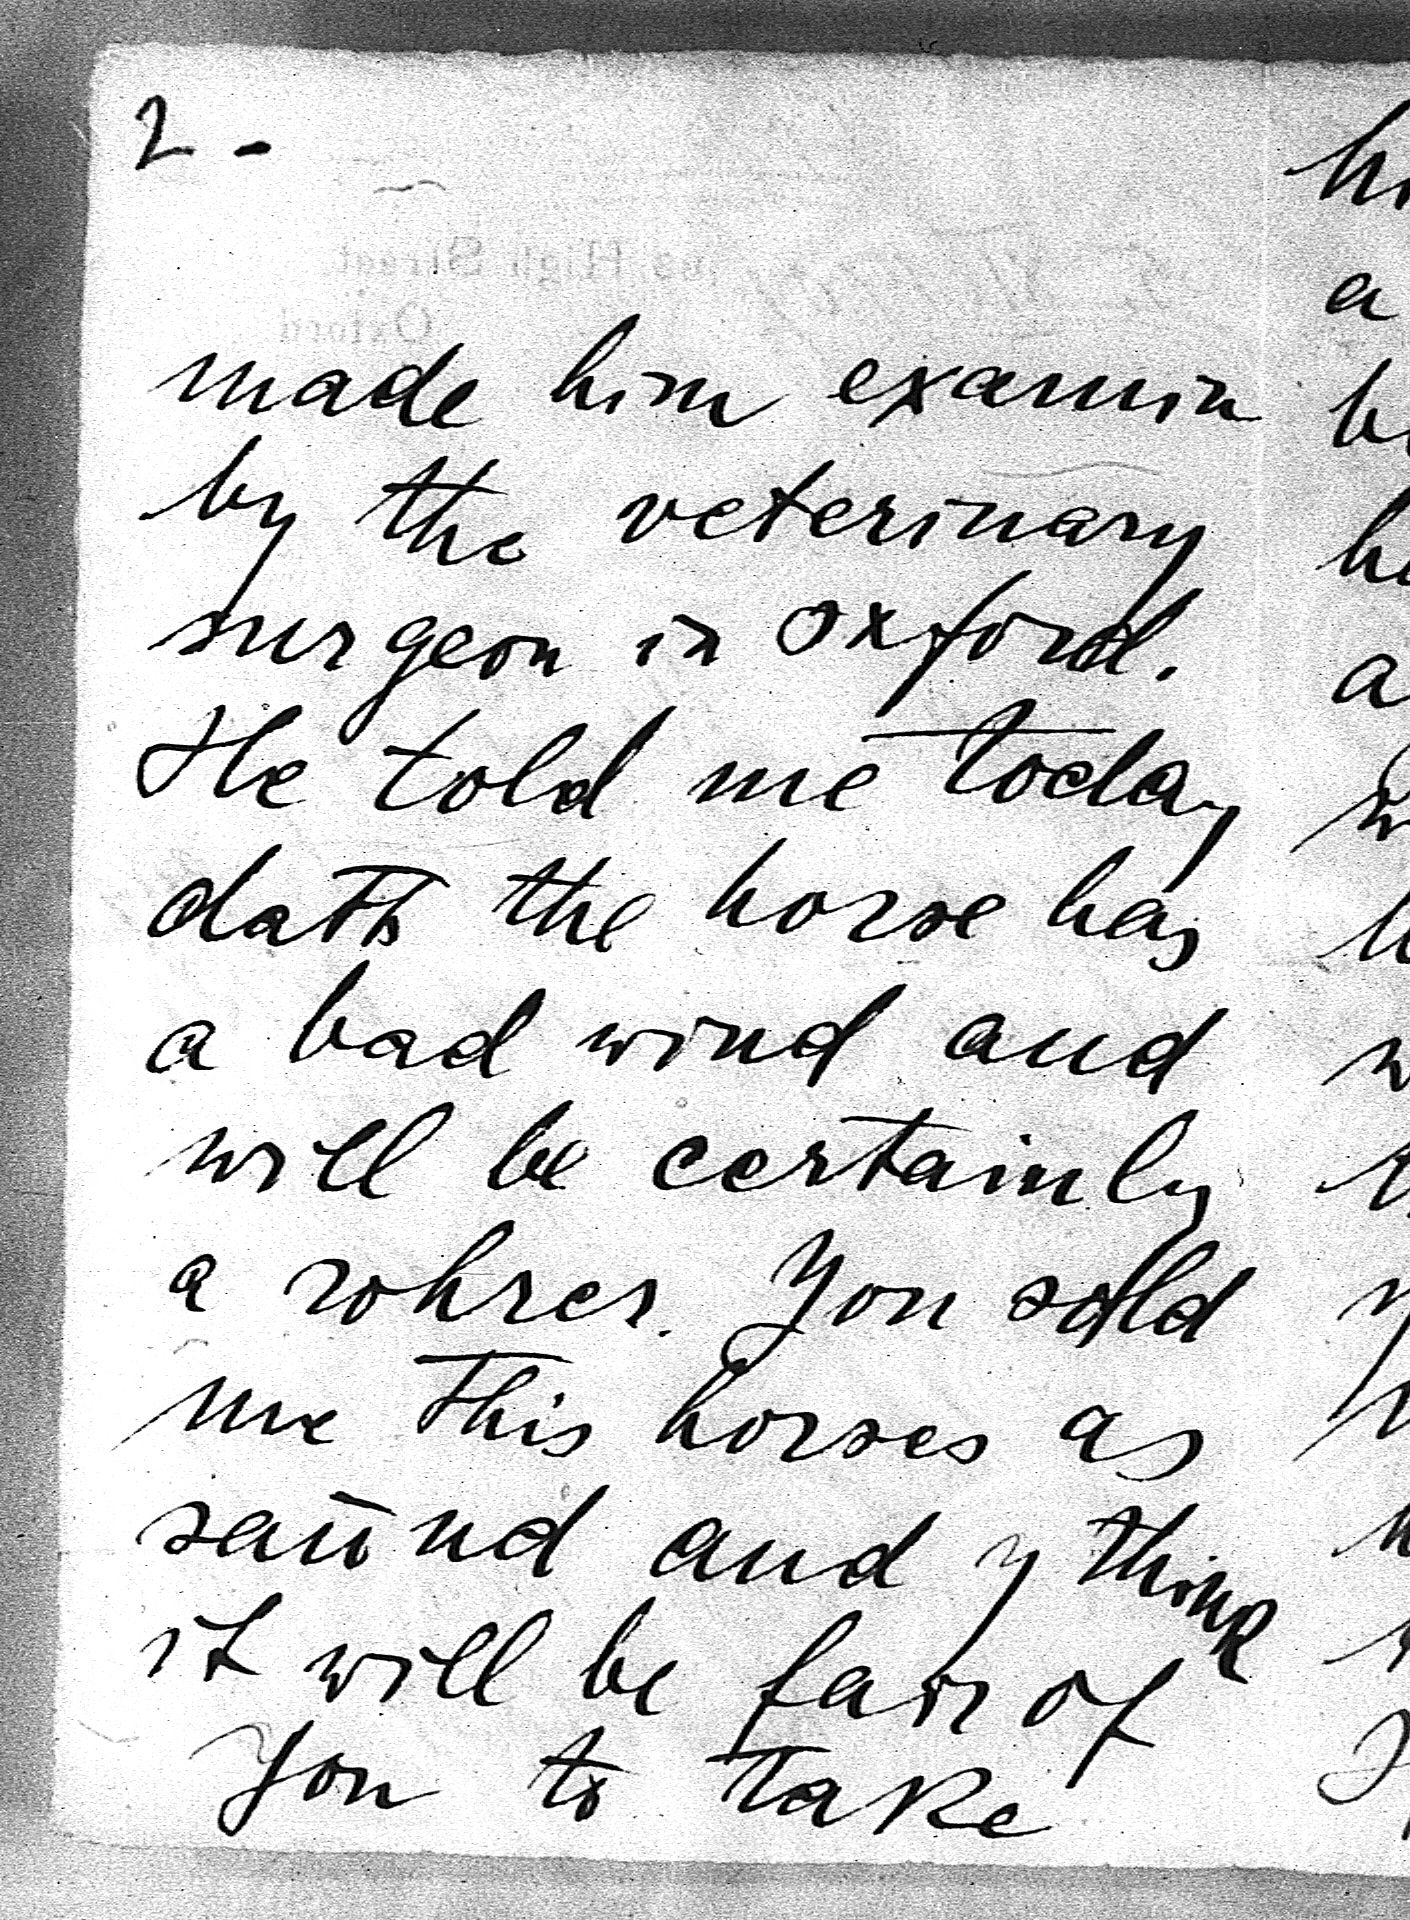 2 -
made him examin
by the veterinary
surgeon in oxford.
He told me today
dath the horse has
a bad wind and
will be certainly
a rohrer. You sold
me this horses as
saūnd and y think
it will be fair of
you to take
High Street
Oxford